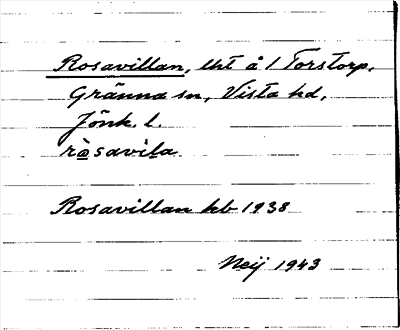 Rosavillan, lht å 1 Torstorp,
Gränna sn, Vista hd,
Jönk. l.
ròsavila
Rosavillan kb 1938
Neij 1943